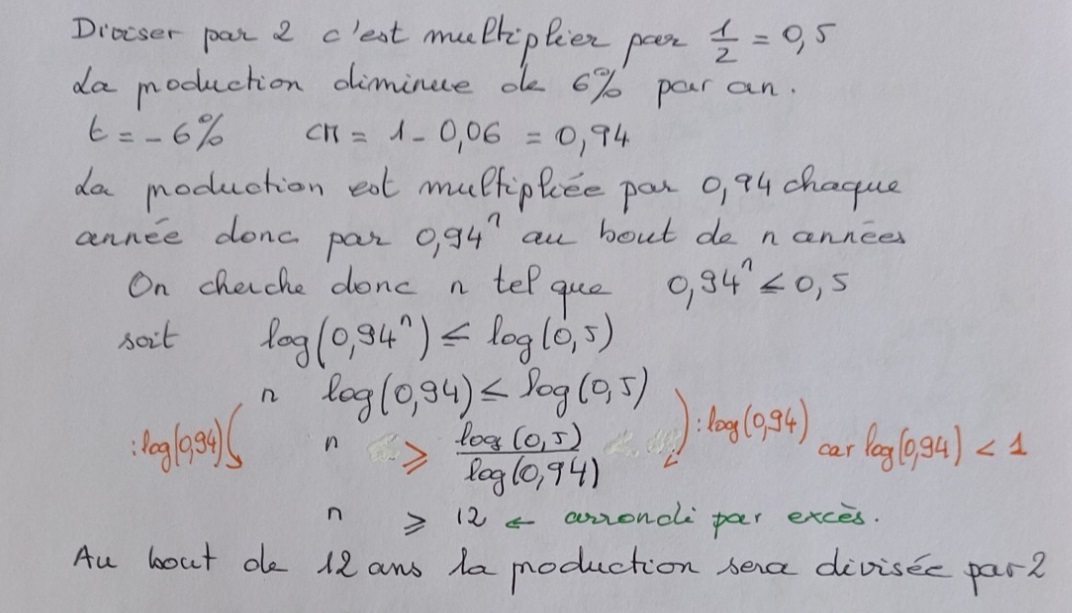 Diviser par 2 c'est multiplier par 1/2 = 0,5
La production diminue de 6% par an.
t = - 6% CM = 1 - 0,06 = 0,94
La production est multipliée par 0,94 chaque
année donc par 0,94^n au bout de n années
On cherche donc n tel que 0,94^n ≤ 0,5
soit log(0,94^n) ≤ log(0,5)
n log(0,94) ≤ log(0,5)
:log(0,94) n ≥ log(0,5)/log(0,94) :log(0,94) car log(0,94) < 1
n ≥ 12 ← arrondi par excès.
Au bout de 12 ans la production sera divisée par 2